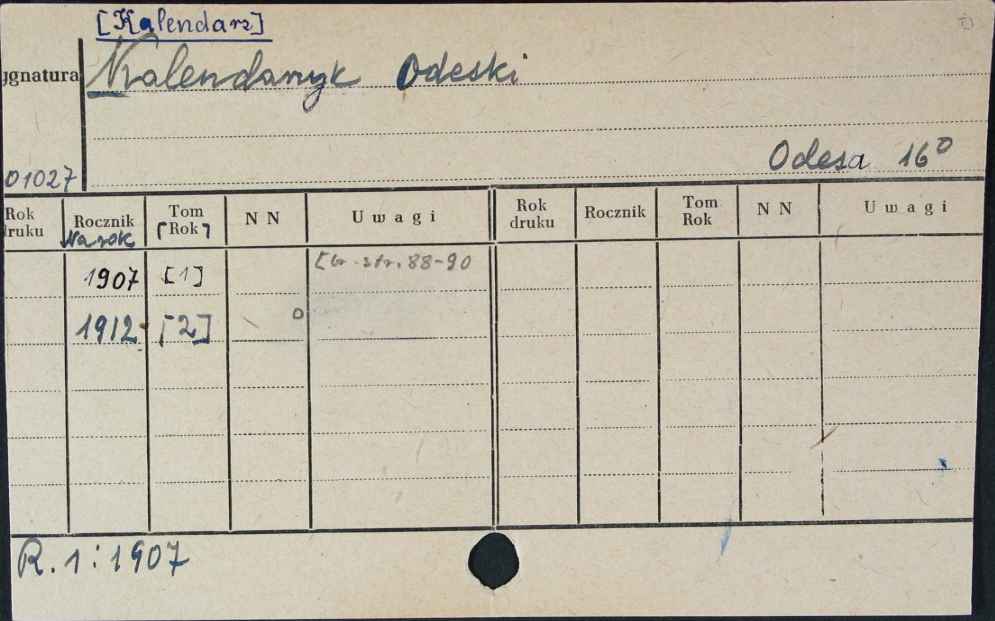 [Kalendarz]
ygnatura Kalendarzyk Odeski
Odesa 16°
01027
Rok druku Rocznik Tom [Rok] N N Uwagi Rok druku Rocznik Tom Rok N N Uwagi
Na rok
1907 [1] [br. str. 88-90
1912 [2]
R. 1: 1907